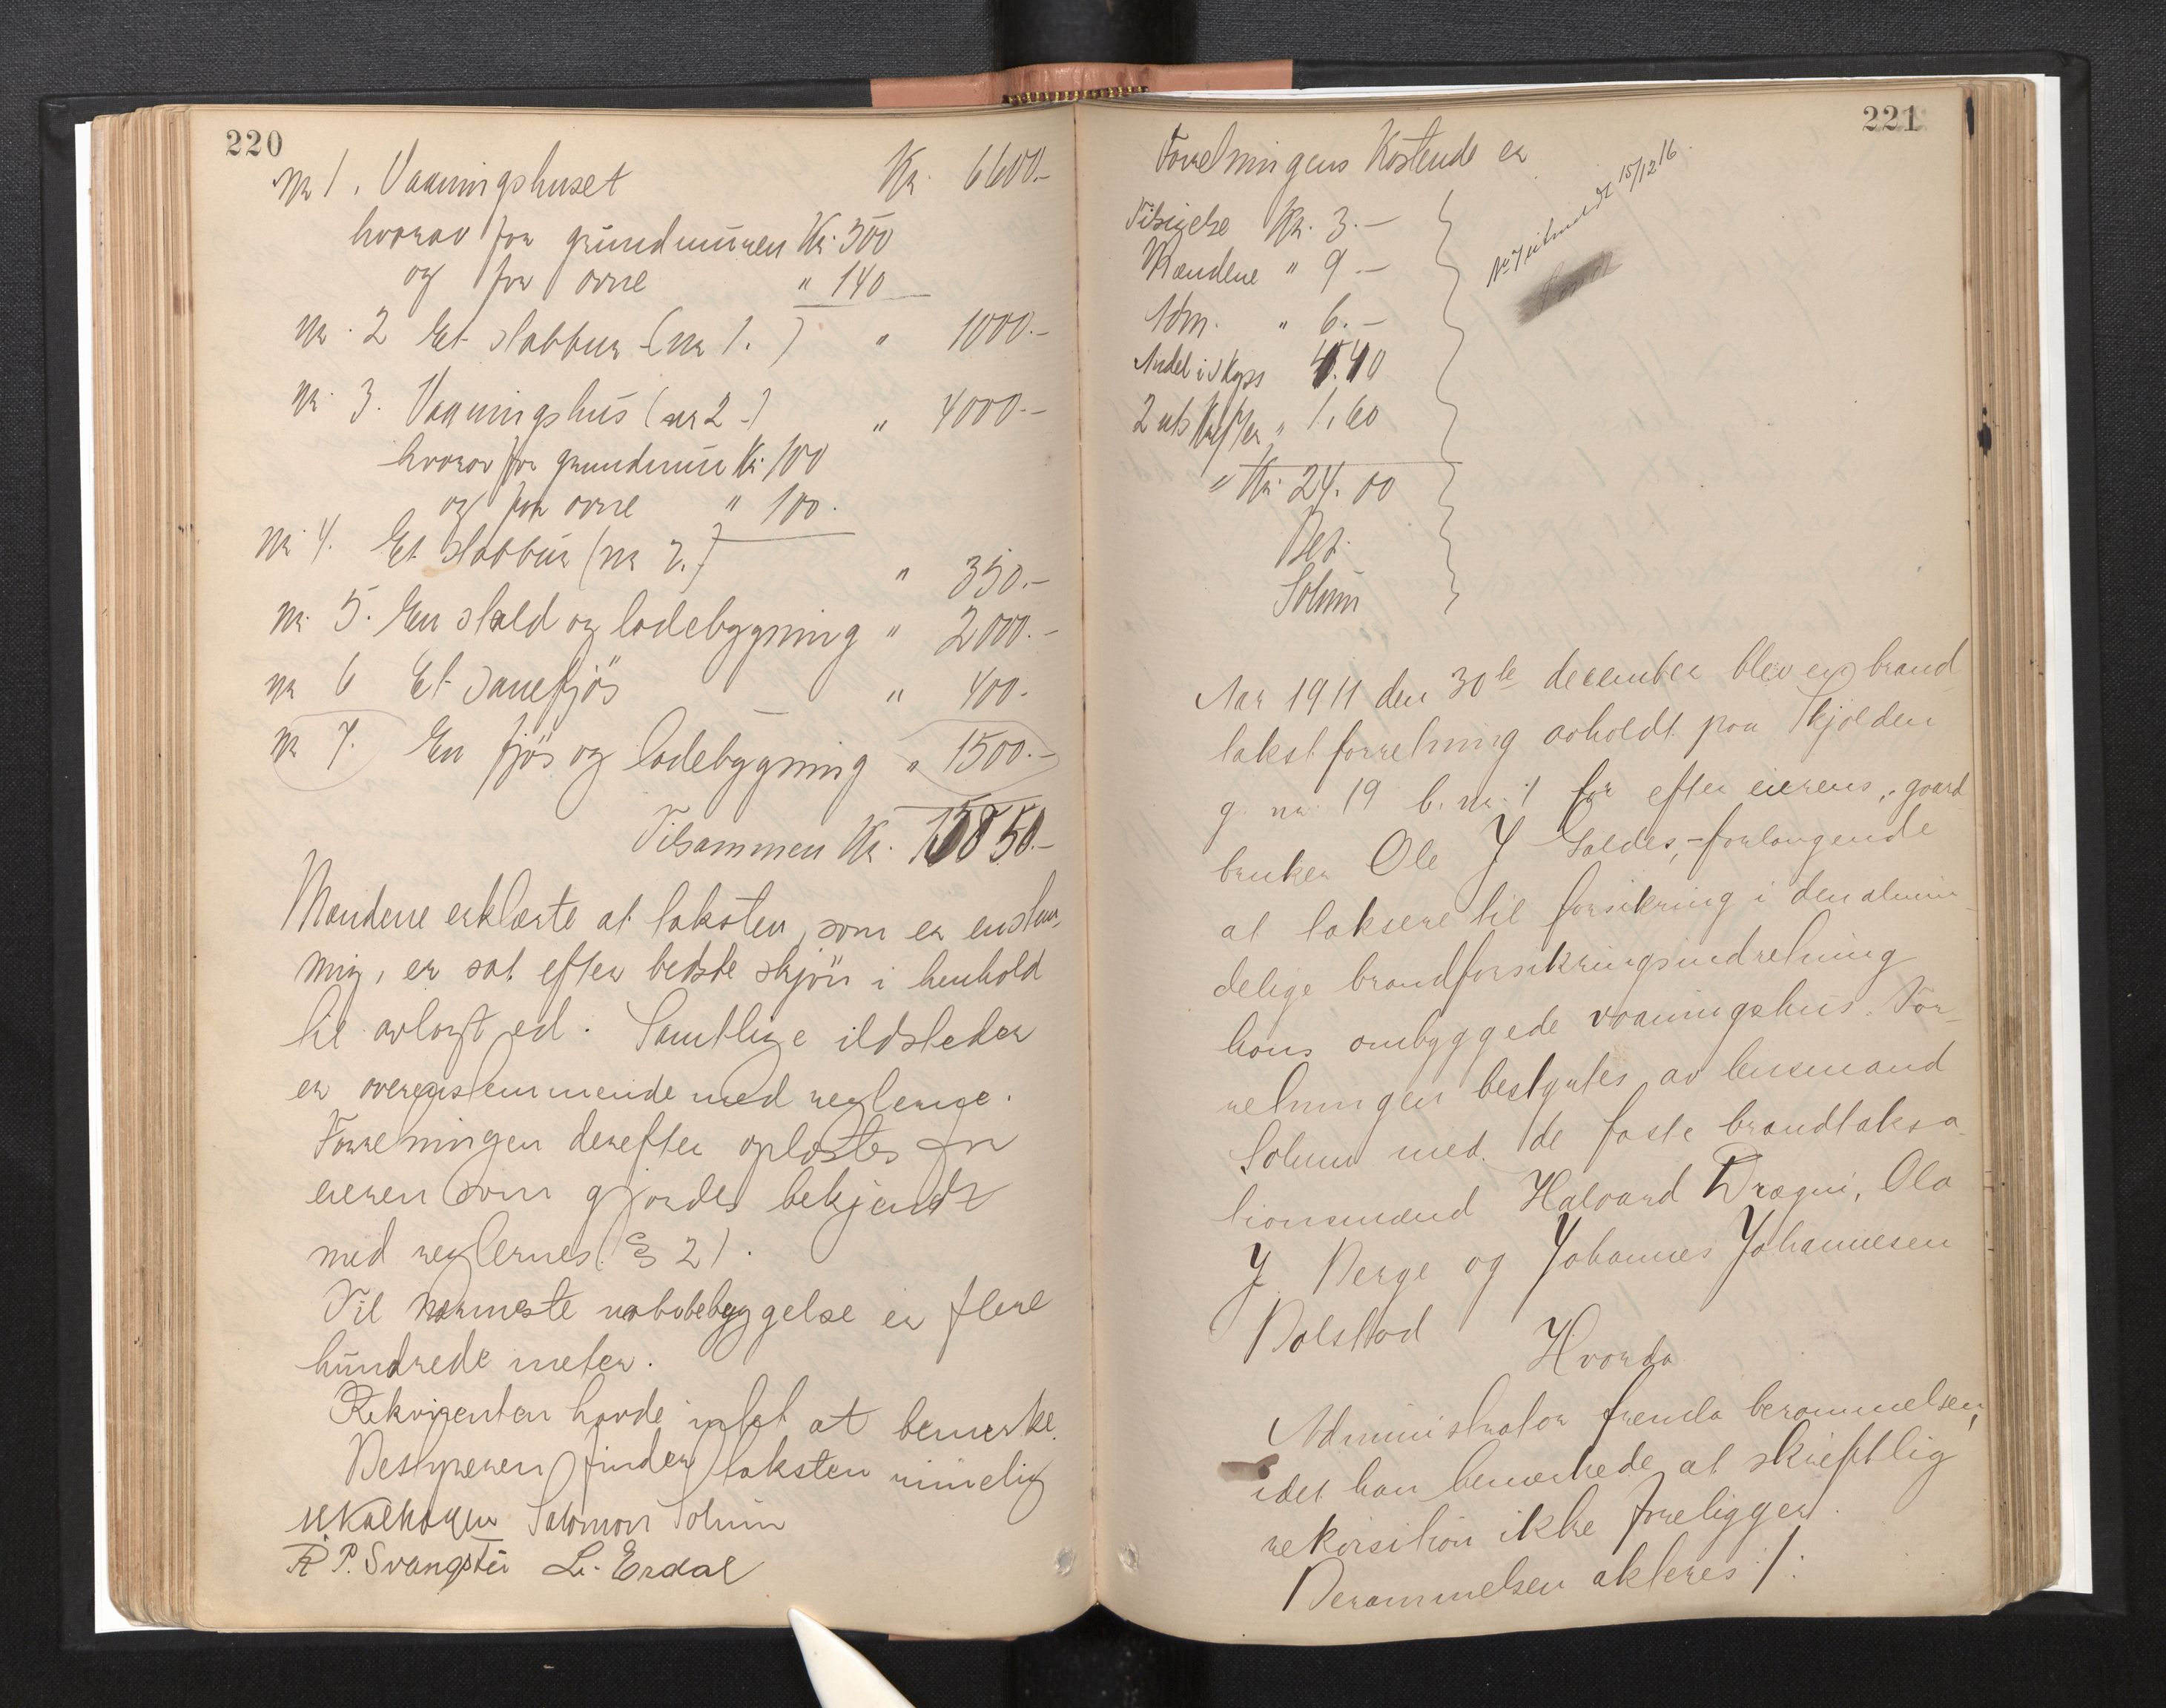 220
nr 1. Vaaningshuset Kr. 6600.-
hvorav for grundmuren Kr. 500
og for ovne " 140
nr. 2 Et stabbur (nr 1.) " 1000.-
nr. 3. Vaaningshus (nr 2-) " 4000.-
hvorav for grundmur Kr. 100
og for ovne " 100.
nr. 4. Et stabbur (nr 2.) " 350.-
nr. 5. En stald og ladebygning " 2000.-
nr 6 Et sauefjös " 400.-
nr 7. En fjös og ladebygning " 1500.-
Tilsammen Kr. 15850.-
Mændene erklærte at taksten, som er enstem-
mig, er sat efter bedste skjön i henhold
til avlagt ed. Samtlige ildsteder
er overensstemmende med reglerne.
Forretningen derefter oplæstes for
eieren som gjordes bekjendt
med reglernes § 21.
Til nærmeste nabobebyggelse er flere
hundrede meter.
Rekvirenten havde intet at bemerke.
Bestyreren finder taksten rimelig
Salomon Solum
R. P. Svangstu L. Erdal
221
Forretningens Kostende er
Tilsigelse Kr. 3.-
Mændene " 9.-
Adm. " 6.-
Andel i skyss 4.40
2 uts " 1.60
" Kr. 24.00
Bet.
Solum
Nr 7 utmeldt 15/12 16.
Aar 1911 den 30te december blev en brand
takstforretning avholdt paa Skjolden
g. nr. 19 b. nr. 1 for efter eierens, gaard
bruker Ole J Galdes, forlangende
at taksere til forsikring i den almin-
delige brandforsikringsindretning
hans ombyggede vaaningshus. For-
retningen bestyrtes av lensmand
Solum med de faste brandtaksa-
tionsmænd Halvard Drægni, Ola
J. Berge og Johannes Johannesen
Bolstad
Hvorda
Administrator fremla berammelsen,
idet han bemerkede at skriftlig
rekvisition ikke foreligger.
Berammelsen akteres /: